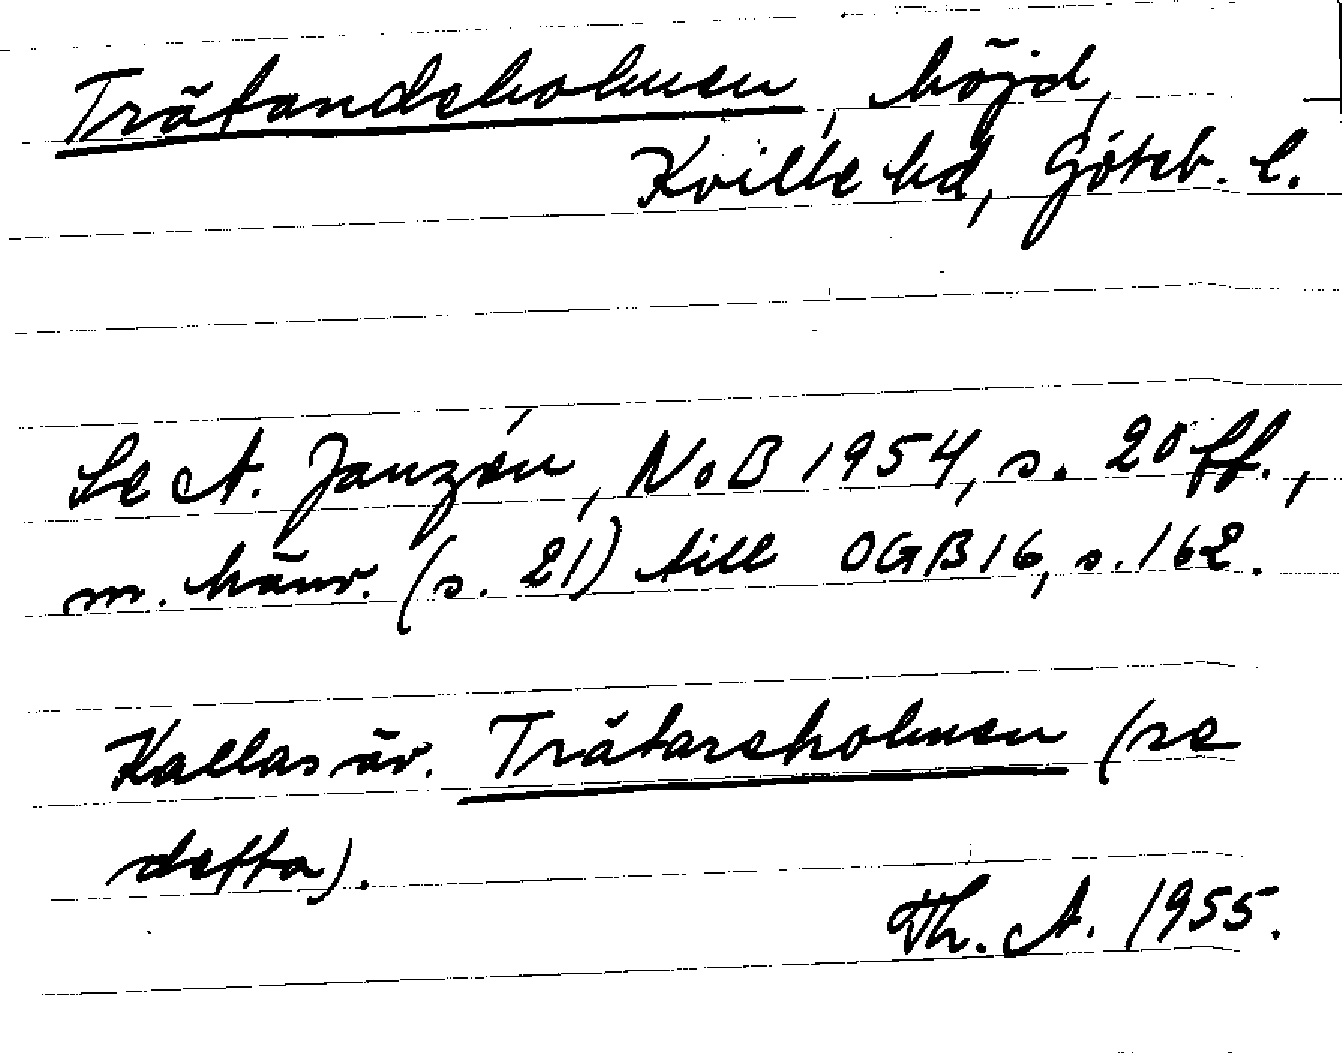 Trätandeholmen, höjd,
Kville hd, Göteb. l.
Se A. Janzén, NoB 1954, s. 20 ff.,
m. hänv. (s. 21) till OGB 16, s. 162.
Kallas äv. Trätareholmen (se
detta).
Th. A. 1955.